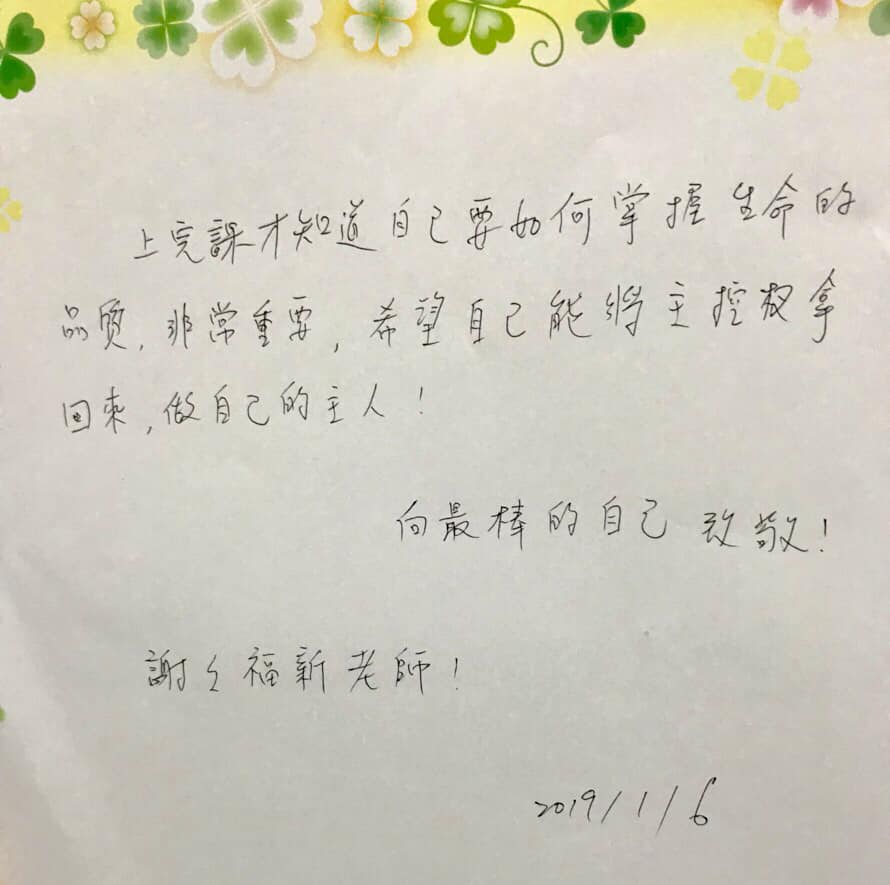 上完課才知道自己要如何掌握生命的
品質,非常重要,希望自己能將主控权拿
回來,做自己的主人!
向最棒的自己致敬!
謝々福新老師!
2019/1/6